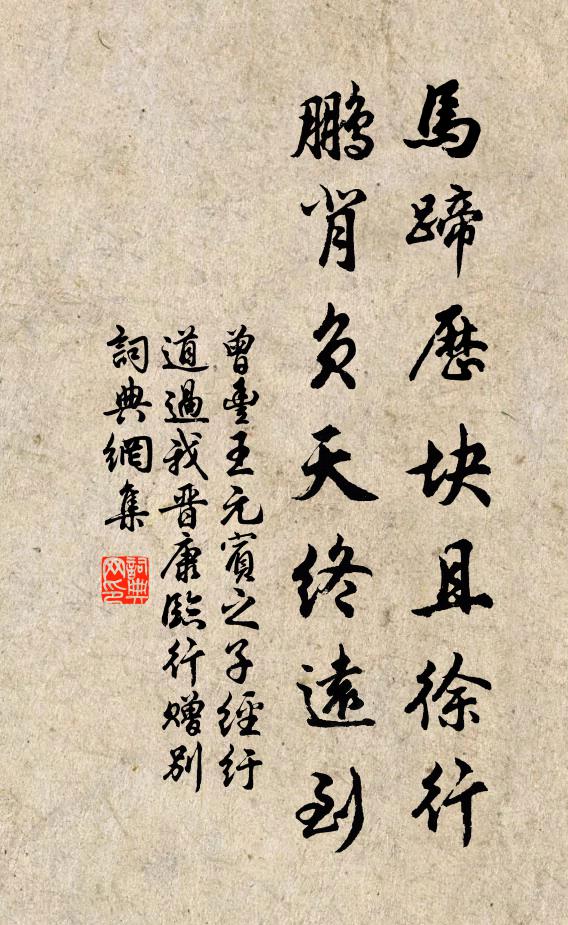 馬蹄歷块且徐行
鵬背负天終遠到
曾豊王元賓之子經紆
道過我晋康臨行贈别
詞典網集
詞典网印